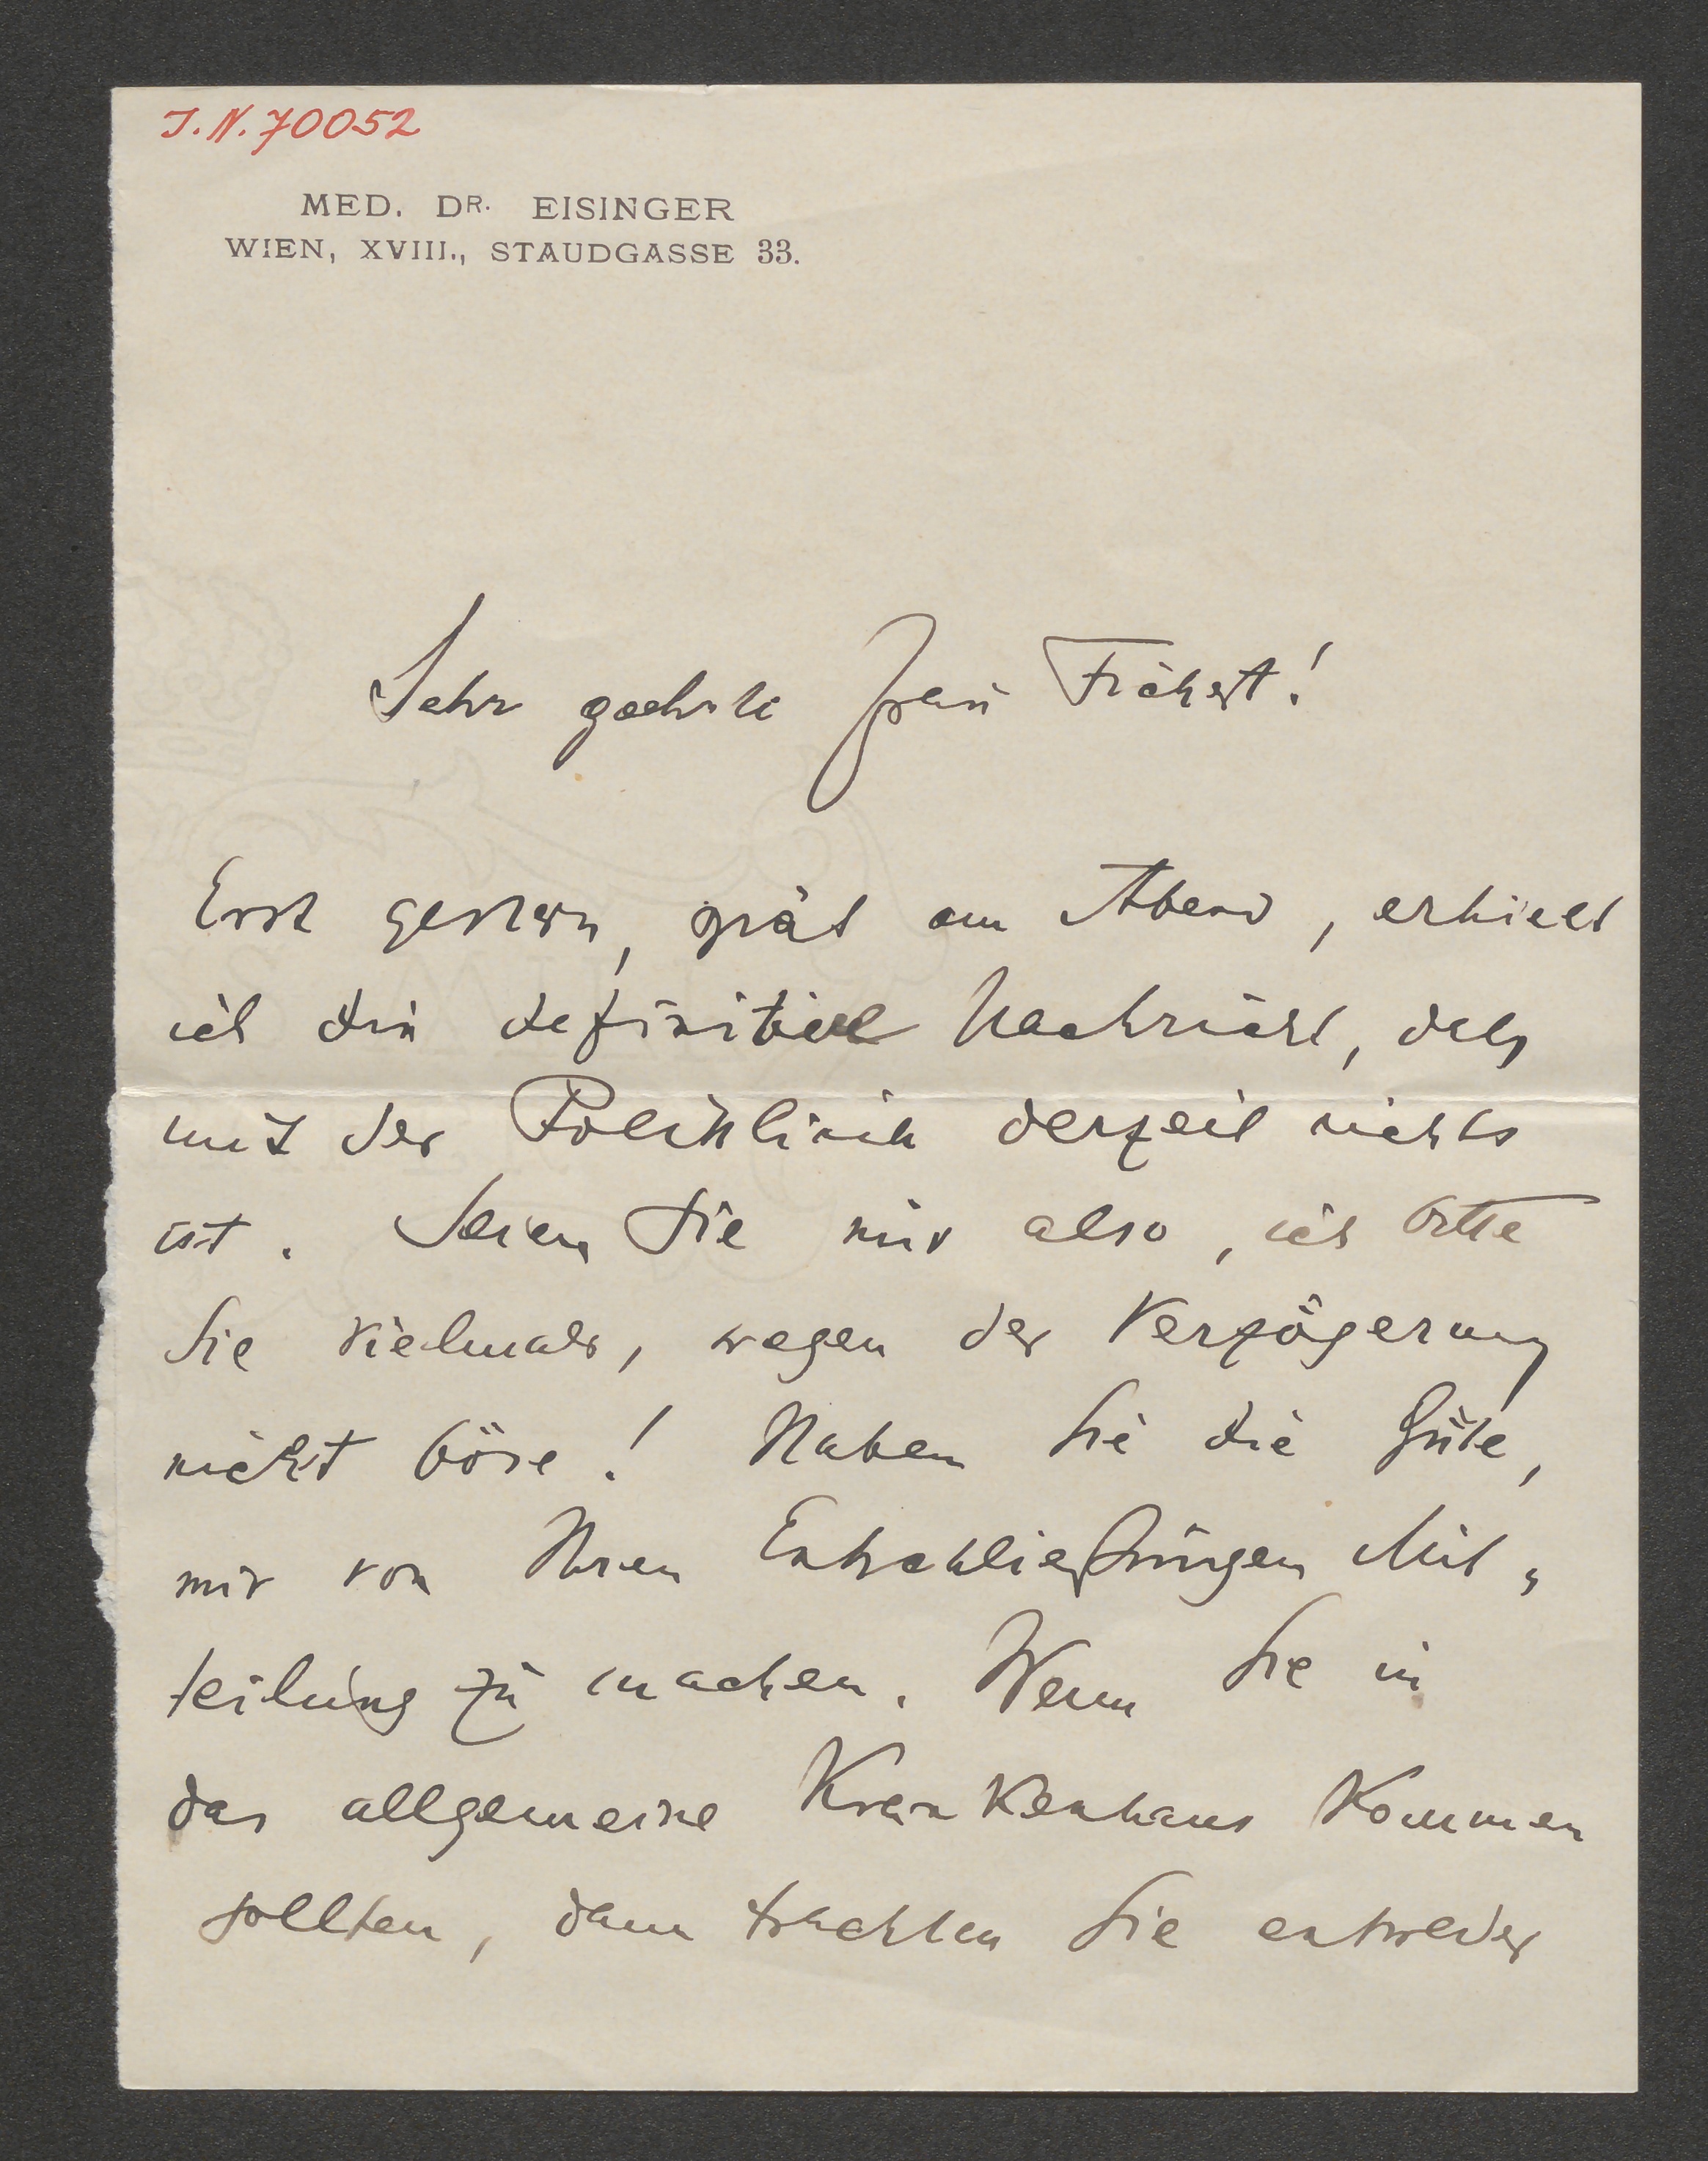 I.N. 70052
MED. DR. EISINGER
WIEN, XVIII., STAUDGASSE 33.
Sehr geehrte Frau
Erst gestern, spät am Abend, erhielt
ich die definitive Nachricht, daß
mit der Poliklinik derzeit nichts
ist. Seien Sie mir also, ich bitte
Sie vielmals, wegen der Verzögerung
nicht böse! Haben Sie die Güte,
mir von Ihren Entschließungen Mit-
teilung zu machen. Wenn Sie in
das allgemeine Krankenhaus kommen
sollten, dann trachten Sie entweder